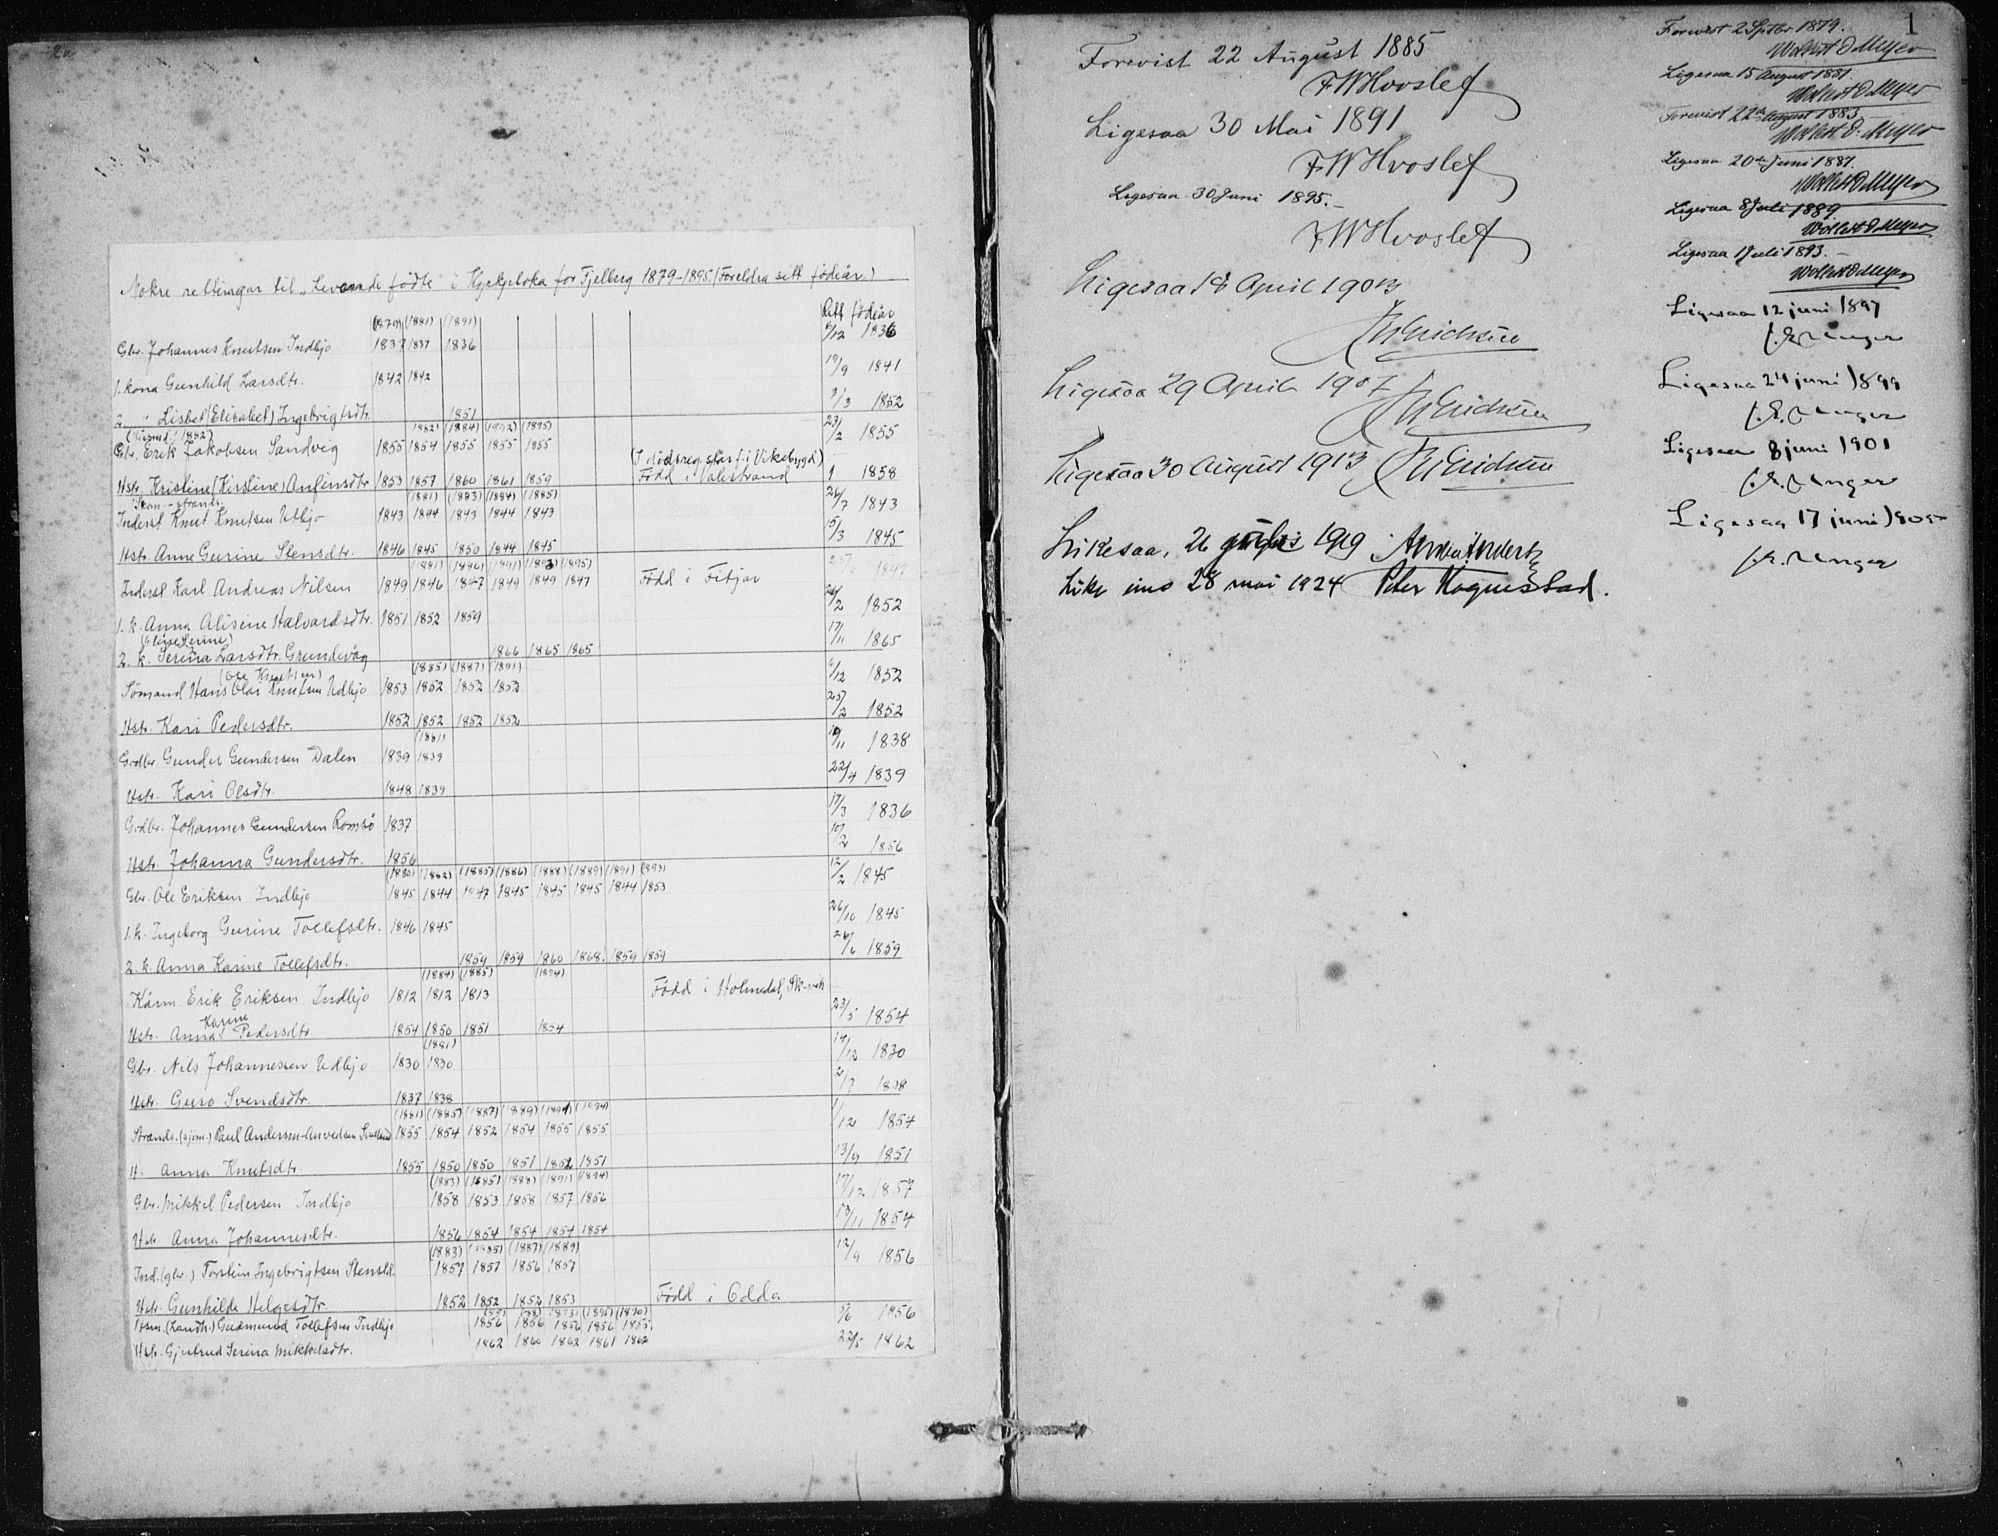 Nokre rettingar til "Levande fødte" i Kyrkjeboka for Fjelberg 1879-1895 (Foreldra sitt fødeår.)
(1879) (1881) (1891) Rett fødeår
Gbr. Johannes Knutsen Indbjo 1837 1837 1836 /12 1836
1. kona Gunhild Larsdtr. 1842 1842 19/9 1841
2. " Lisbet (Elisabet) Ingebrigtsdtr. 1851 3/3 1852
(1882) (1884) (1892) (1895)
Gbr. Erik Jakobsen Sandvig 1855 1854 1855 1855 1855 23/2 1855
(I dødsreg. står f. i Vikebygd)
Hstr. Kristine (Kirstine) Anfinsdtr 1853 1857 1860 1861 1859 Född i Valestrand 1 1858
(1881) (1883) (1884) (1885)
Inderst Knut Knutsen Utbjo 1843 1844 1843 1844 1843 26/7 1843
Hstr. Anne Gurine Stensdtr. 1846 1845 1850 1844 1845 15/3 1845
(1881) (1886) (1891) (1893) (1895)
Inderst Karl Andreas Nilsen 1849 1846 1847 1849 1849 1847 Född i Fitjar 1847
1. k. Anna Alisene Halvardsdtr. 1851 1852 1859 24/2 1852
2. k. Serina Larsdtr. Grundevåg 1866 1865 1865 17/11 1865
(1885) (1887) (1891)
(Ole Knutsen)
Sømand Hans Olai Knutsen Udbjo 1853 1852 1852 1852 6/12 1852
Hstr. Kari Pedersdtr. 1852 1852 1852 1852 25/2 1852
(1881)
Grdbr. Gunder Gundersen Dalen 1839 1839 19/11 1838
Hstr. Kari Olsdtr. 1848 1839 22/4 1839
Grdbr. Johannes Gundersen Romsö 1837 17/3 1836
Hstr. Johanna Gundersdtr. 1856 10/2 1856
(1880) (1882) (1885) (1886) (1888) (1889) (1891) (1893)
Gbr. Ole Eriksen Indbjo 1845 1844 1847 1845 1845 1845 1844 1853 12/2 1845
1. k. Ingeborg Gurine Tollefsdtr. 1846 1845 26/10 1845
2. k. Anna Karine Tollefsdtr. 1859 1859 1860 1868 1859 1859 26/6 1859
(1884) (1885) (1894)
Kårm. Erik Eriksen Indbjo 1812 1812 1813 Född i Holmedal,
Karine
Hstr. Anna Pedersdtr 1854 1850 1851 1854 23/5 1854
(1881)
Gbr. Nils Johannessen Udbjo 1830 1830 14/12 1830
Hstr. Guro Svendsdtr. 1837 1838 2/7 1838
(1881) (1885) (1887) (1889) (1891) (1894)
Strands. (sjöm.) Paul Andersen-Anvedsen 1855 1854 1852 1854 1855 1855 1/12 1854
H. Anna Knutsdtr. 1855 1850 1850 1851 1852 1851 13/9 1851
(1883) (1885) (1888) (1891) (1894)
Gbr. Mikkel Pedersen Indbjo 1858 1853 1858 1857 1856 17/12 1857
Hstr. Anna Johannesdtr. 1856 1854 1854 1854 1854 13/11 1854
(1883) (1885) (1887) (1889)
Ind. (gbr.) Torstein Ingebrigtsen 1857 1857 1856 1857 12/9 1856
Hstr. Gunhilde Helgesdtr 1852 1852 1852 1853 Född i Odda
(1895) (1890)
Hsm. (Landh.) Gudmund Tollefsen Indbjo 1856 1856 1856 1856 1855 1/6 1856
Hstr. Gjertrud Serina Mikkelsdtr. 1862 1860 1862 1861 1862 22/5 1862
Forevist 22 August 1885
FWHvoslef
Ligesaa 30 Mai 1891
FWHvoslef
Ligesaa 30 Juni 1895.
FWHvoslef
Ligesaa 18 April 1903
Erichsen
Ligesaa 29 April 1907
Erichsen
Ligesaa 30 August 1913 Erichsen
Likesaa, 26 1919
Like ens 28 mai 1924 Peter Hognestad.
1
Forevist 2 Septbr 1879.
Wollert D Meyer
Ligesaa 15 August 1881.
Wollert D Meyer
Forevist 22de August 1883
Wollert D. Meyer
Ligesaa 20de Juni 1887.
Wollert D Meyer
Ligesaa 8 Juli 1889
Wollert D Meyer
Ligesaa 1 Juli 1893.
Wollert D Meyer
Ligesaa 12 juni 1897
J. K. Unger
Ligesaa 24 juni 1899
J. K. Unger
Ligesaa 8 juni 1901
J. K. Unger
Ligesaa 17 juni 1905
J. K. Unger